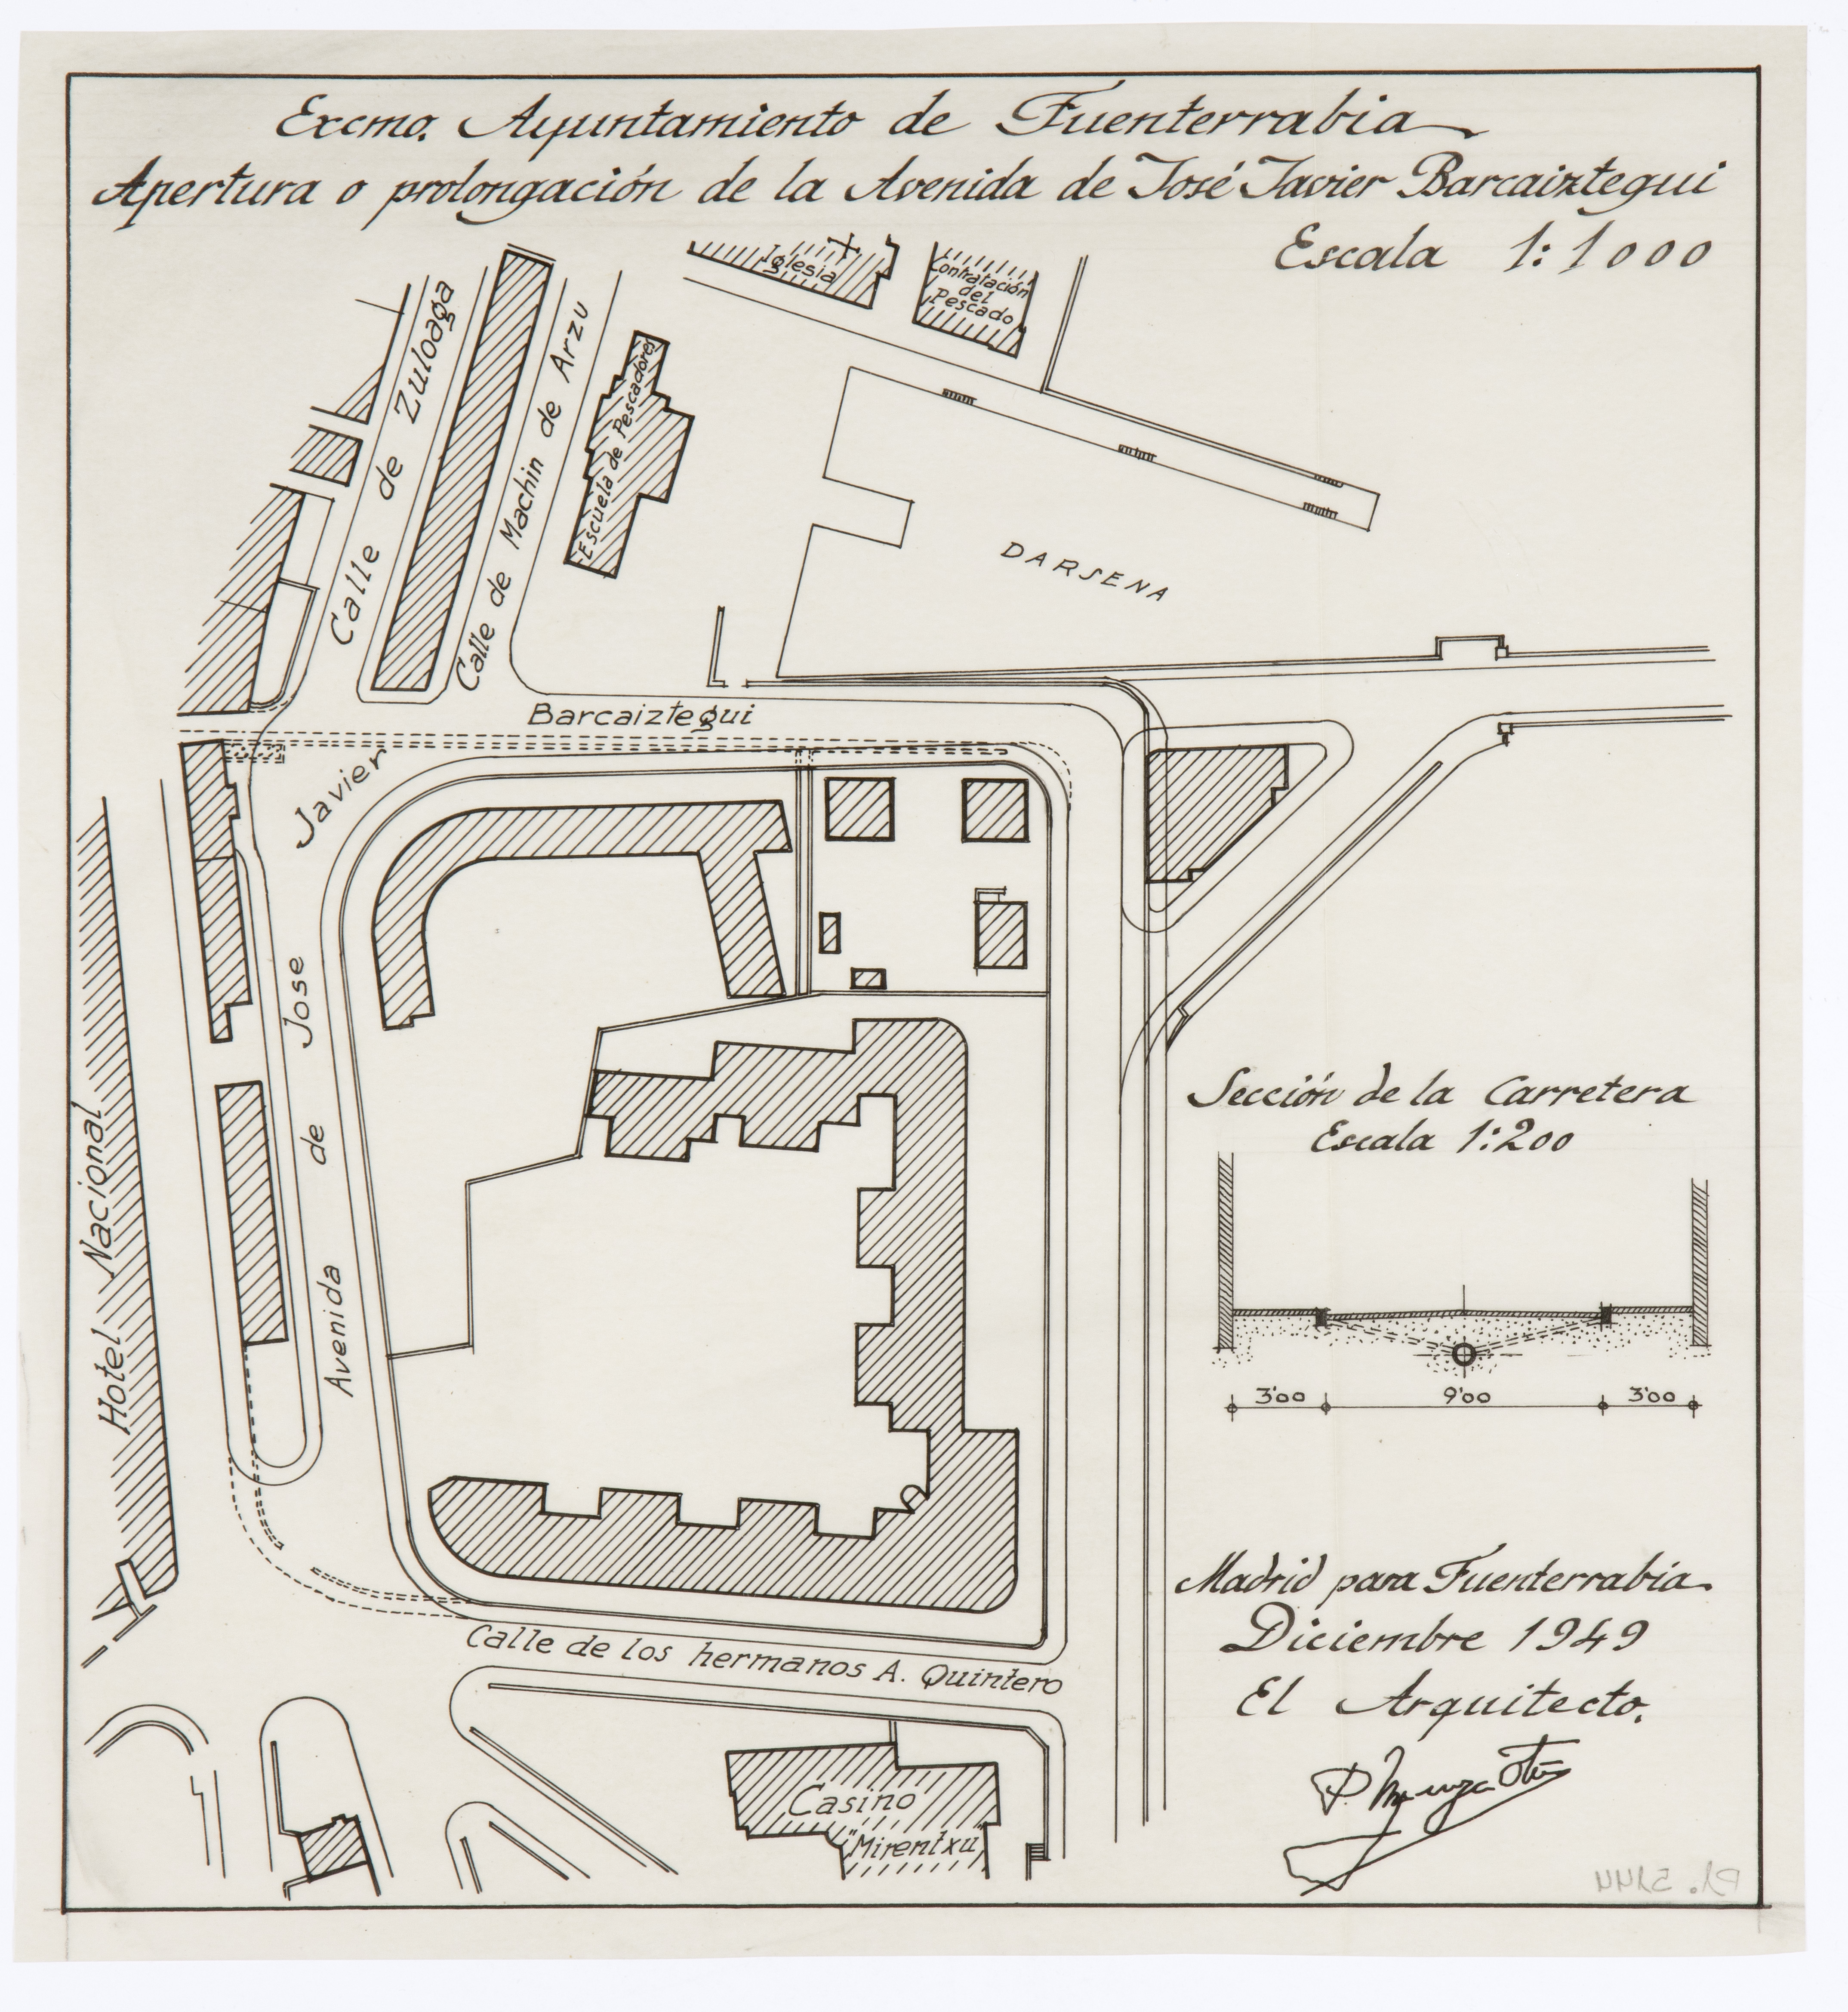 Excmo. Ayuntamiento de Fuenterrabia
Apertura o prolongación de la Avenida de José Javier Barcaiztegui
Escala 1:1000
Iglesia
Contratación
del
Pescado
Calle de Zuloaga
Calle de Machin de Arzu
Escuela de Pescadores
DARSENA
Avenida de Jose Javier Barcaiztegui
Hotel Nacional
Sección de la Carretera
Escala 1:200
3'00 9'00 3'00
Calle de los hermanos A. Quintero
Casino
"Mirentxu"
Madrid para Fuenterrabia
Diciembre 1949
El Arquitecto.